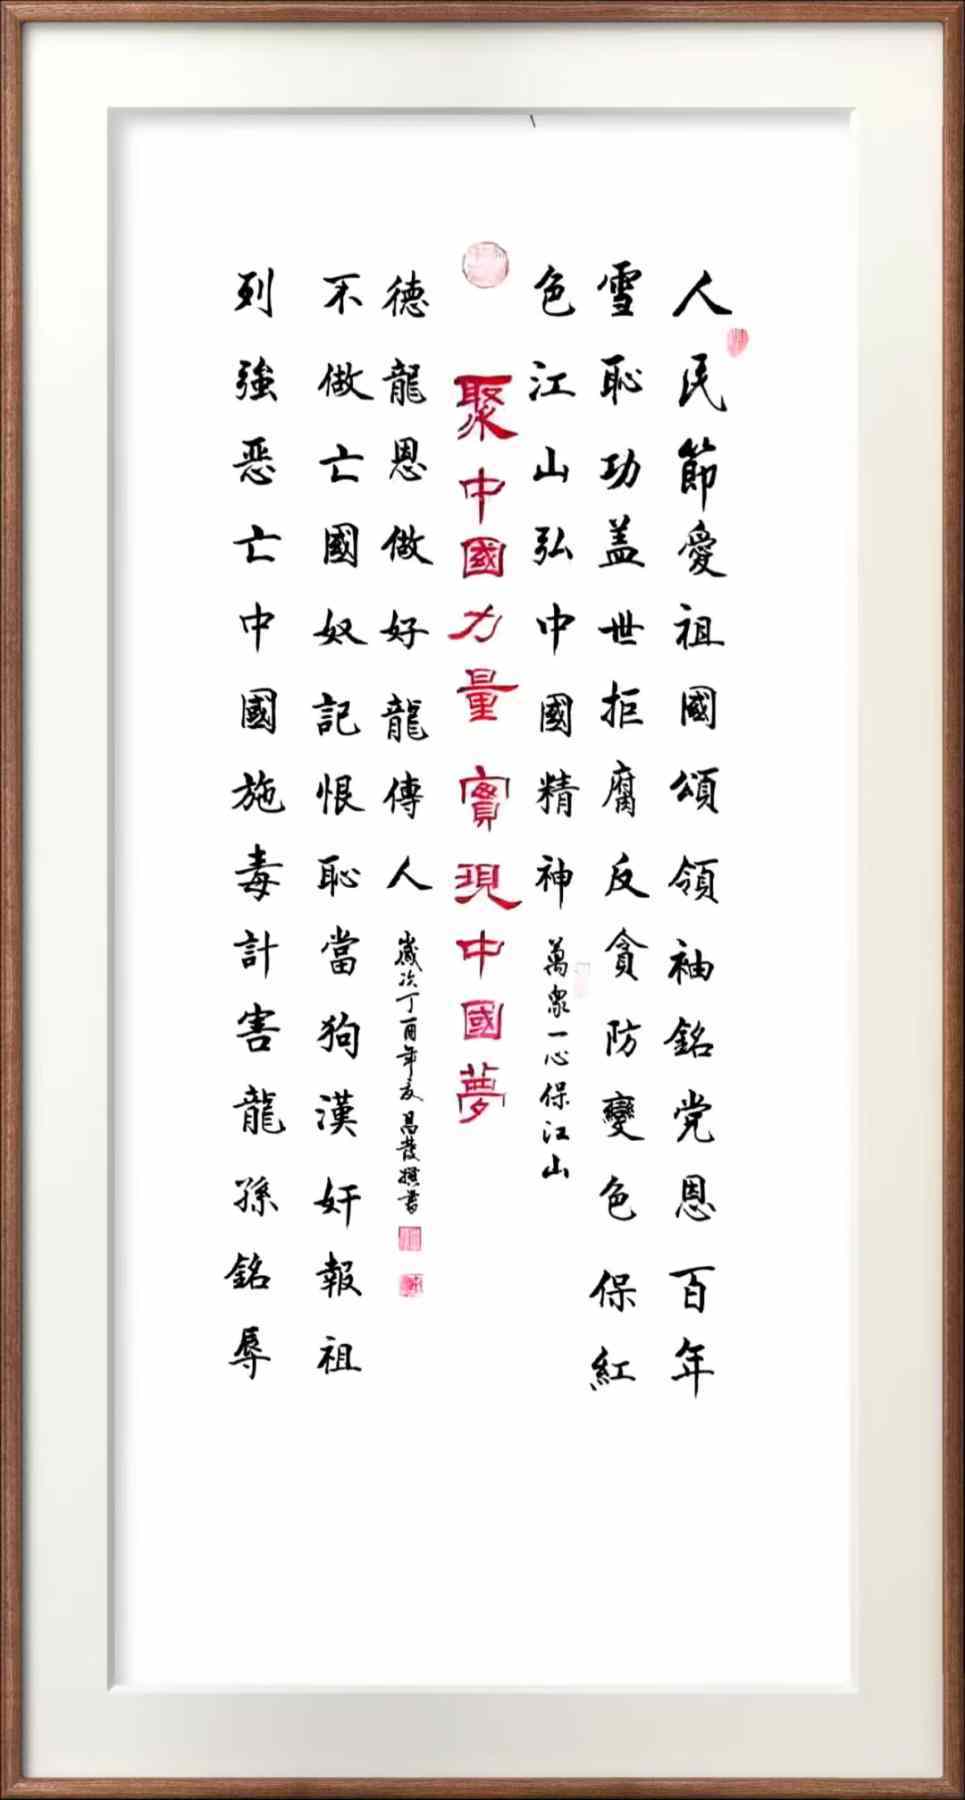 人民節愛祖國頌領袖銘党恩百年
雪恥功盖世拒腐反貪防變色保紅
色江山弘中國精神
萬衆一心保江山
聚中國力量實現中國夢
列強恶亡中國施毒計害龍孫銘辱
不做亡國奴記恨恥當狗漢奸報祖
德龍恩做好龍傳人
歲次丁酉年夏昌發撰書